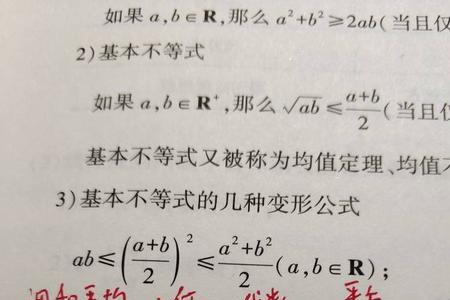 如果 a,b∈R,那么 a²+b²≥2ab(当且仅
2)基本不等式
如果 a,b∈R⁺,那么 √ab ≤ (a+b)/2 (当且仅
基本不等式又被称为均值定理、均值不
3)基本不等式的几种变形公式
ab≤((a+b)/2)²≤(a²+b²)/2 (a,b∈R);